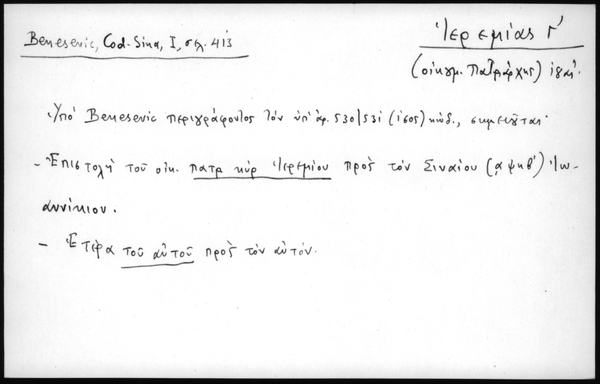 Benesevic, Cod. Sina, I, σελ. 413
Ἱερεμίας Γ'
(οἰκουμ. Πατριάρχης)
Ὑπό Benesevic περιγράφοντος τὸν ὑπ' ἀρ. 530/531 (ισος) κώδ., σημειοῦται·
- Ἐπιστολὴ τοῦ οἰκ. πατρ κὺρ Ἱερεμίου πρὸς τὸν Σιναίου (͵αψκβ') Ἰω-
αννίκιον.
- Ἑτέρα τοῦ αὐτοῦ πρὸς τὸν αὐτόν.